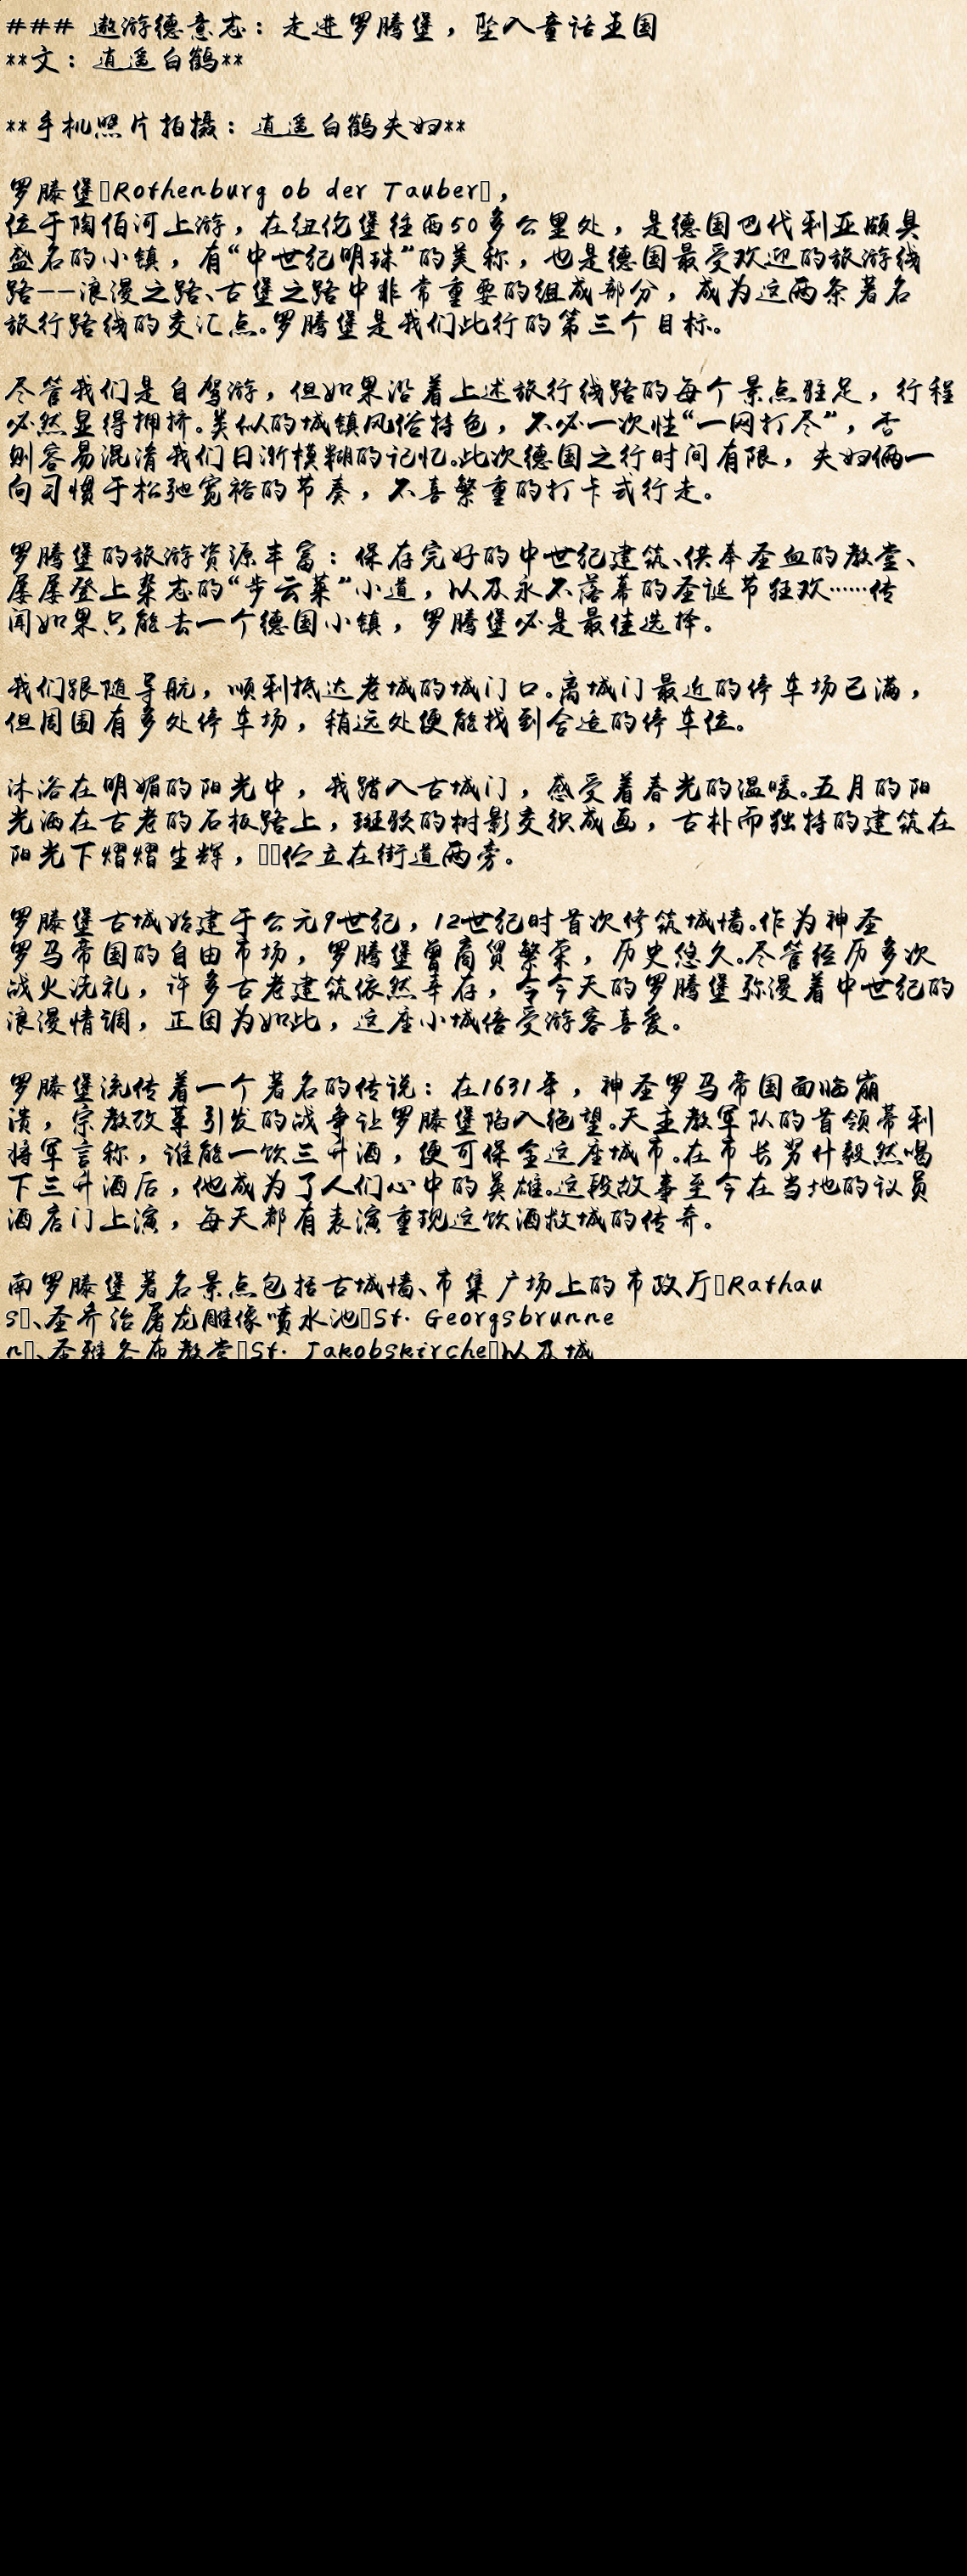 ### 遨游德意志：走进罗腾堡，坠入童话王国
**文：逍遥白鹤**
**手机照片拍摄：逍遥白鹤夫妇**
罗滕堡Rothenburg ob der Tauber，
位于陶伯河上游，在纽伦堡往西50多公里处，是德国巴伐利亚颇具
盛名的小镇，有“中世纪明珠”的美称，也是德国最受欢迎的旅游线
路——浪漫之路、古堡之路中非常重要的组成部分，成为这两条著名
旅行路线的交汇点。罗腾堡是我们此行的第三个目标。
尽管我们是自驾游，但如果沿着上述旅行线路的每个景点驻足，行程
必然显得拥挤。类似的城镇风俗特色，不必一次性“一网打尽”，否
则容易混淆我们日渐模糊的记忆。此次德国之行时间有限，夫妇俩一
向习惯于松弛宽裕的节奏，不喜繁重的打卡式行走。
罗腾堡的旅游资源丰富：保存完好的中世纪建筑、供奉圣血的教堂、
屡屡登上杂志的“步云莱”小道，以及永不落幕的圣诞节狂欢……传
闻如果只能去一个德国小镇，罗腾堡必是最佳选择。
我们跟随导航，顺利抵达老城的城门口。离城门最近的停车场已满，
但周围有多处停车场，稍远处便能找到合适的停车位。
沐浴在明媚的阳光中，我踏入古城门，感受着春光的温暖。五月的阳
光洒在古老的石板路上，斑驳的树影交织成画，古朴而独特的建筑在
阳光下熠熠生辉，伫立在街道两旁。
罗滕堡古城始建于公元9世纪，12世纪时首次修筑城墙。作为神圣
罗马帝国的自由市场，罗腾堡曾商贸繁荣，历史悠久。尽管经历多次
战火洗礼，许多古老建筑依然幸存，令今天的罗腾堡弥漫着中世纪的
浪漫情调，正因为如此，这座小城倍受游客喜爱。
罗滕堡流传着一个著名的传说：在1631年，神圣罗马帝国面临崩
溃，宗教改革引发的战争让罗滕堡陷入绝望。天主教军队的首领蒂利
将军言称，谁能一饮三升酒，便可保全这座城市。在市长努什毅然喝
下三升酒后，他成为了人们心中的英雄。这段故事至今在当地的议员
酒店门上演，每天都有表演重现这饮酒救城的传奇。
南罗滕堡著名景点包括古城墙、市集广场上的市政厅Rathau
s、圣乔治屠龙雕像喷水池St. Georgsbrunne
n、圣雅各布教堂St. Jakobskirche以及城